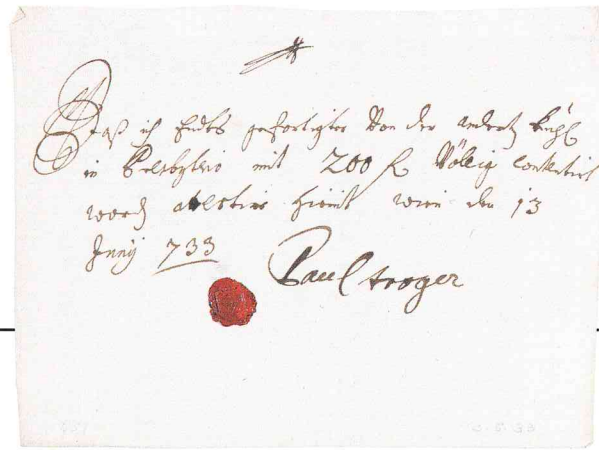 Daß ich Endts gefertigter Von der
in Presbyterio mit 200 f Völlig contentirt
worden attestire hiemit wien den 13
Junij 733
Paul troger